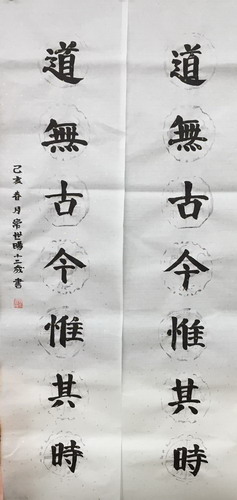 道無古今惟其時
道無古今惟其時
己亥春月常世賜十二歲書